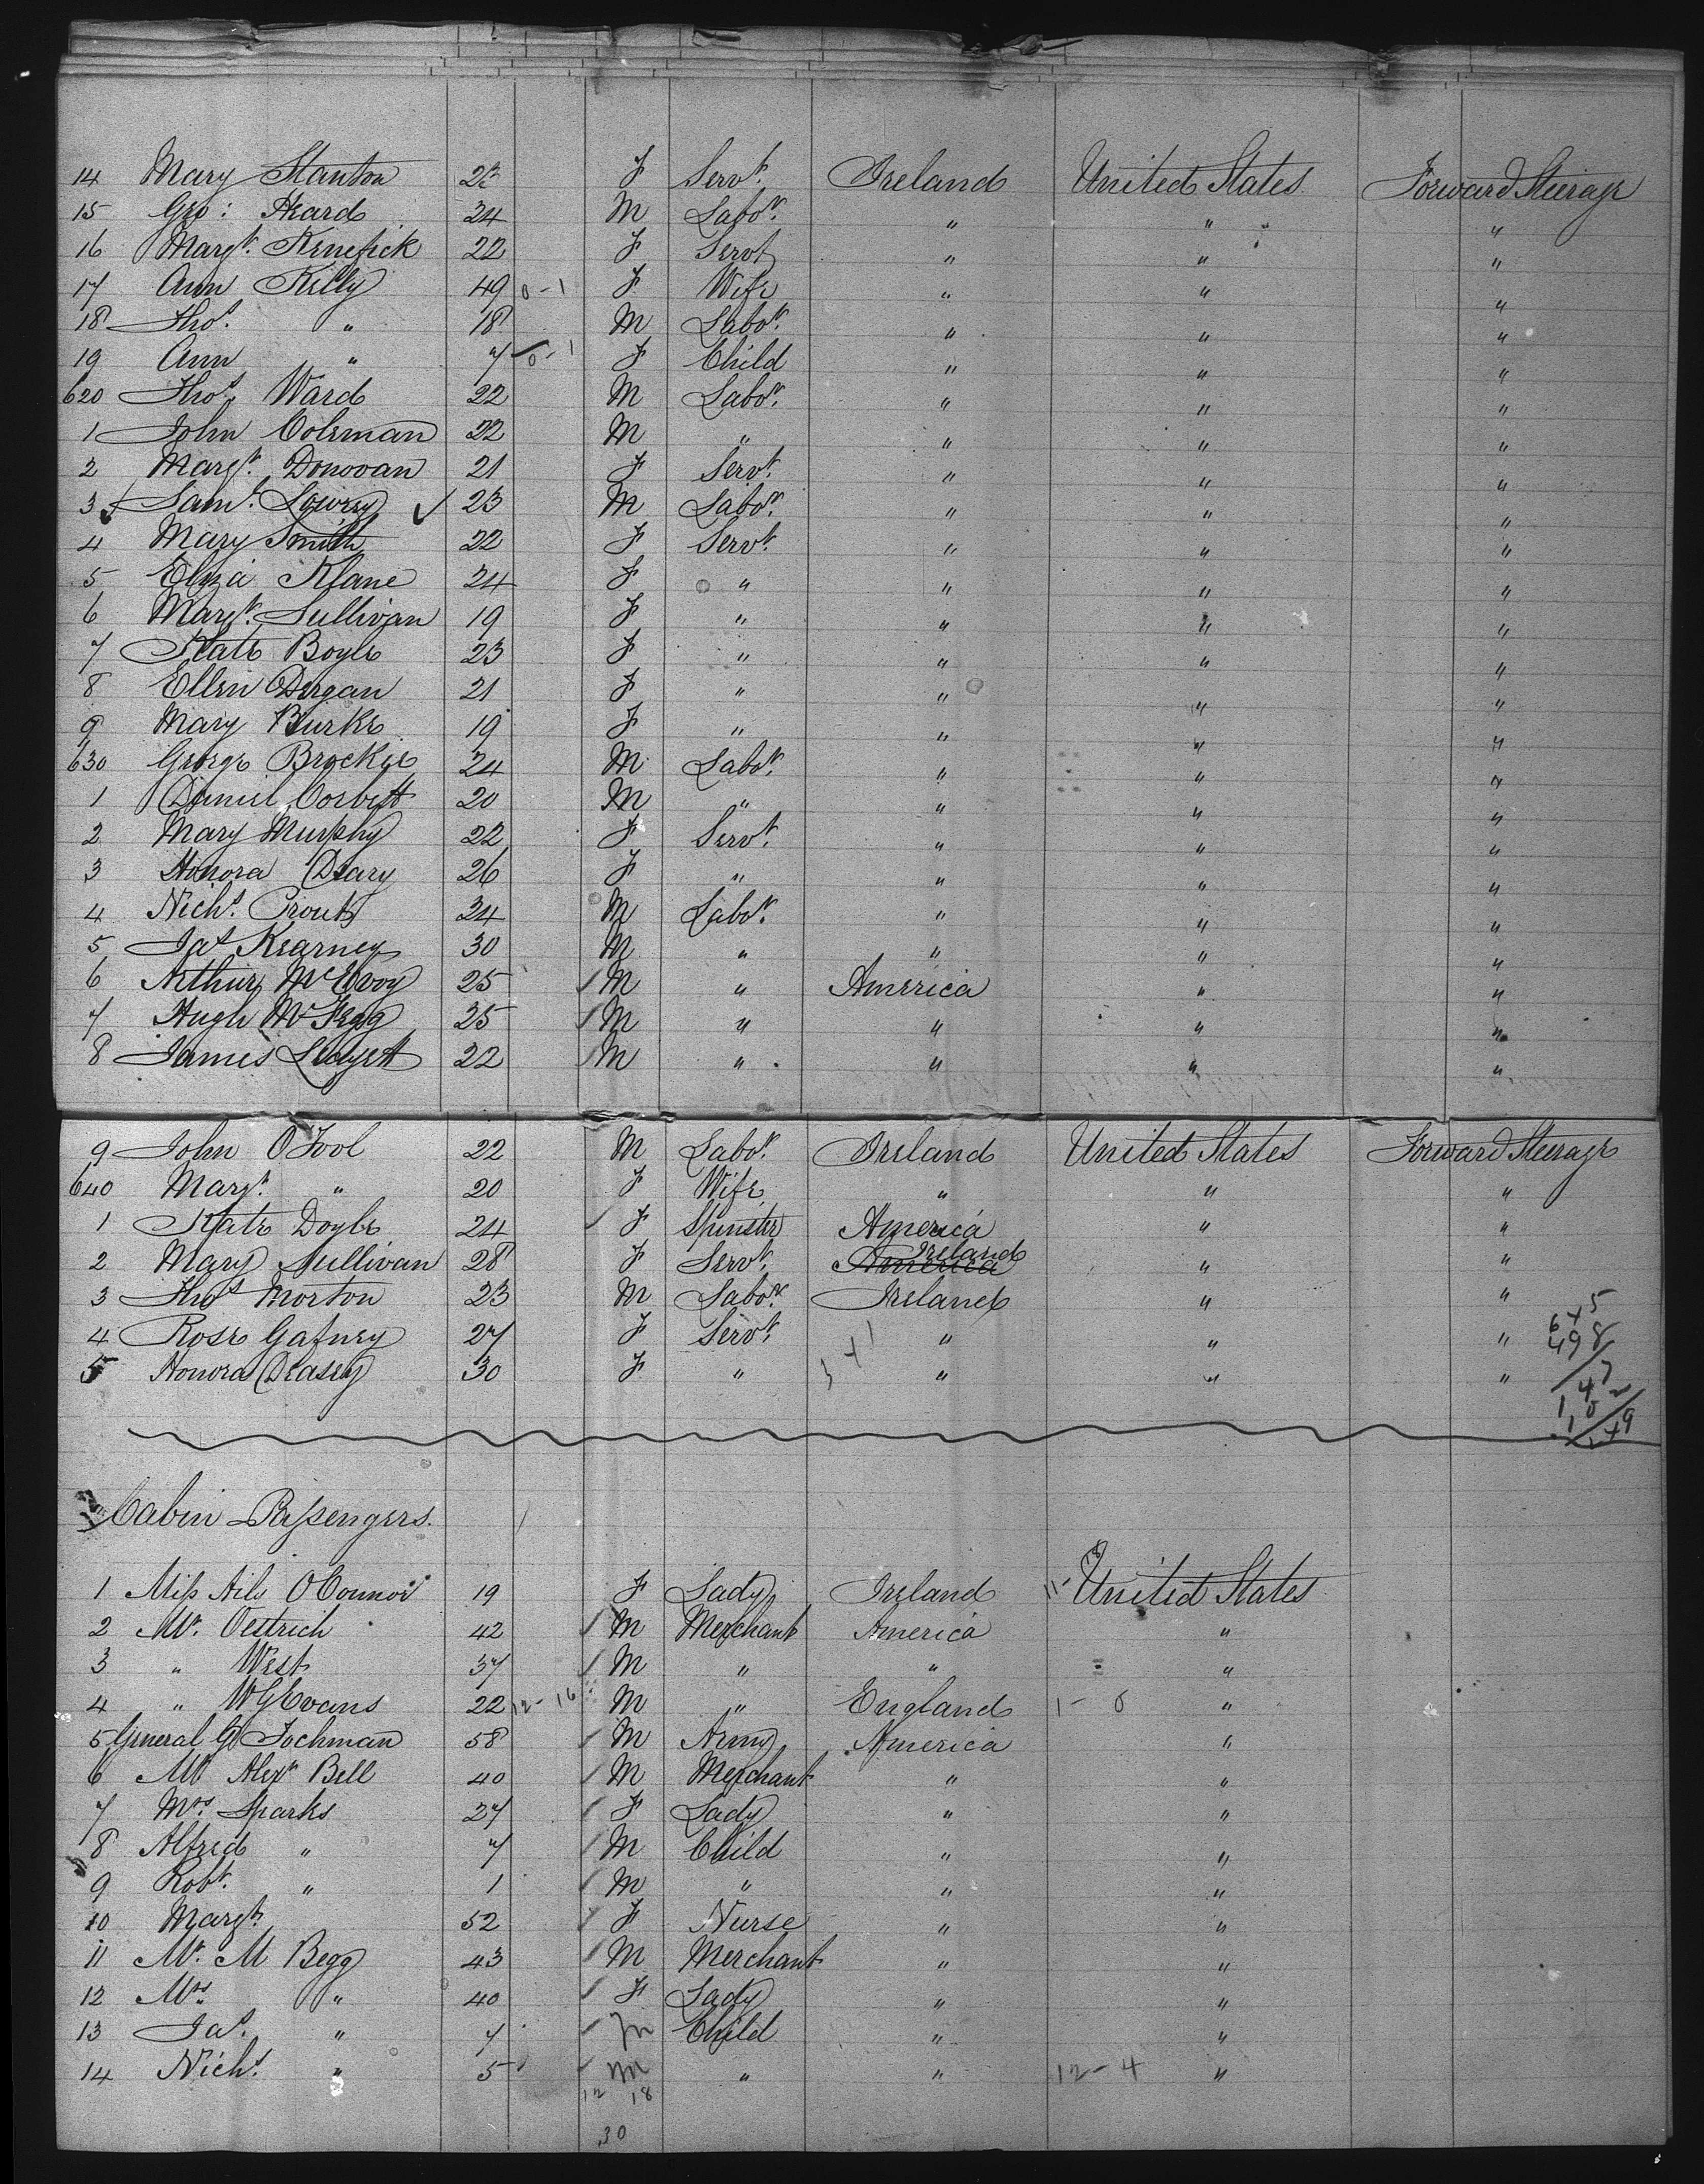 14 Mary Stanton 23 F Servt. Ireland United States Forward Steerage
15 Geo: Heard 24 M Labor. " " "
16 Margt. Kenefick 22 F Servt " " "
17 Ann Kelly 49 0-1 F Wife " " "
18 Thos. " 18 M Labor. " " "
19 Ann " 7 0-1 F Child " " "
620 Thos. Ward 22 M Labor. " " "
1 John Coleman 22 M " " " "
2 Margt. Donovan 21 F Servt. " " "
3 Saml. Lowry 23 M Labor. " " "
4 Mary Smith 22 F Servt. " " "
5 Eliza Klane 24 F " " " "
6 Margt. Sullivan 19 F " " " "
7 Kate Boyle 23 F " " " "
8 Ellen Dergan 21 F " " " "
9 Mary Burke 19 F " " " "
630 George Brockie 24 M Labor. " " "
1 Daniel Corbett 20 M " " " "
2 Mary Murphy 22 F Servt. " " "
3 Honora Deary 26 F " " " "
4 Nichs. Prout 34 M Labor. " " "
5 Jas Kearney 30 M " " " "
6 Arthur McEvoy 25 M " America " "
7 Hugh McKegg 35 M " " " "
8 James 22 M " " " "
9 John OTool 22 M Labor. Ireland United States Forward Steerage
640 Margt. " 20 F Wife " " "
1 Kate Doyle 24 F Spinster America " "
2 Mary Sullivan 28 F Servt. America Ireland " "
3 Thos Morton 23 M Labor. Ireland " "
4 Rose Gafney 27 F Servt. " " "
5 Honora Deasey 30 F " " " "
645
498
147
102
249
Cabin Passengers.
1 Miss Aily OConnor 19 F Lady Ireland United States
2 Mr. Oestrich 42 M Merchant America "
3 " West 37 M " " "
4 " W G Evans 22 12-16 M " England 1-0 "
5 General G Tochman 58 M Army America "
6 Mr Alexr Bell 40 M Merchant " "
7 Mrs. Sparks 27 F Lady " "
8 Alfred " 7 M Child " "
9 Robt. " 1 M " " "
10 Margt. 52 F Nurse " "
11 Mr. M Begg 43 M Merchant " "
12 Mrs. " 40 F Lady " "
13 Jas. " 7 M Child " "
14 Nichs. " 5 M " " 12-4 "
12 18
30